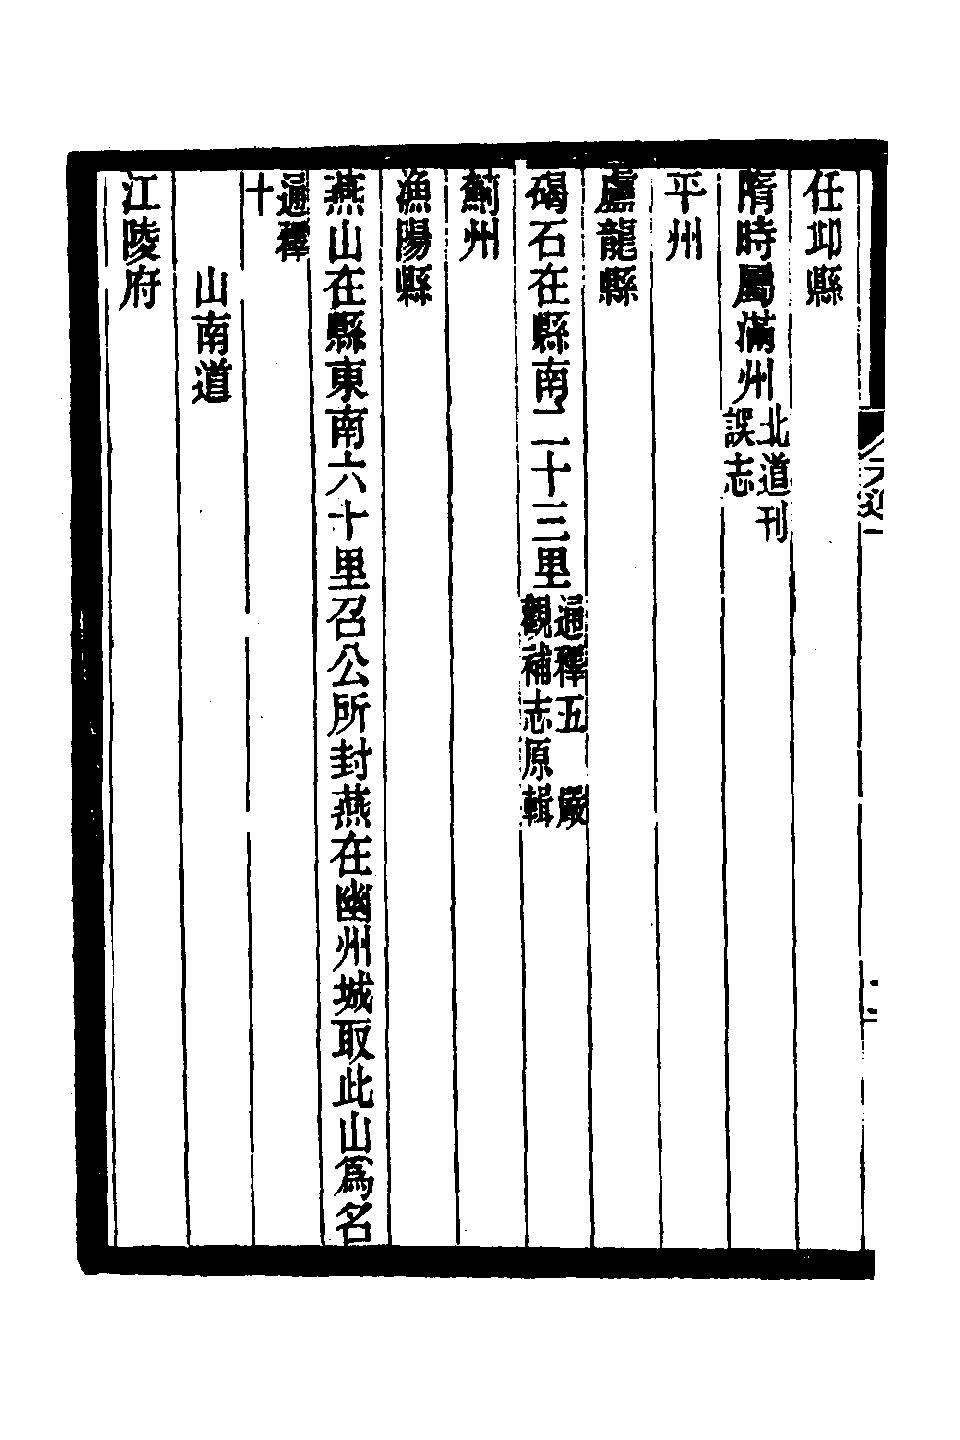 任邱縣
隋時屬滿州北道刊
誤志
平州
盧龍縣
碣石在縣南二十三里通釋五　嚴
觀補志原輯
薊州
漁陽縣
燕山在縣東南六十里召公所封燕在幽州城取此山爲名
通釋
十
山南道
江陵府